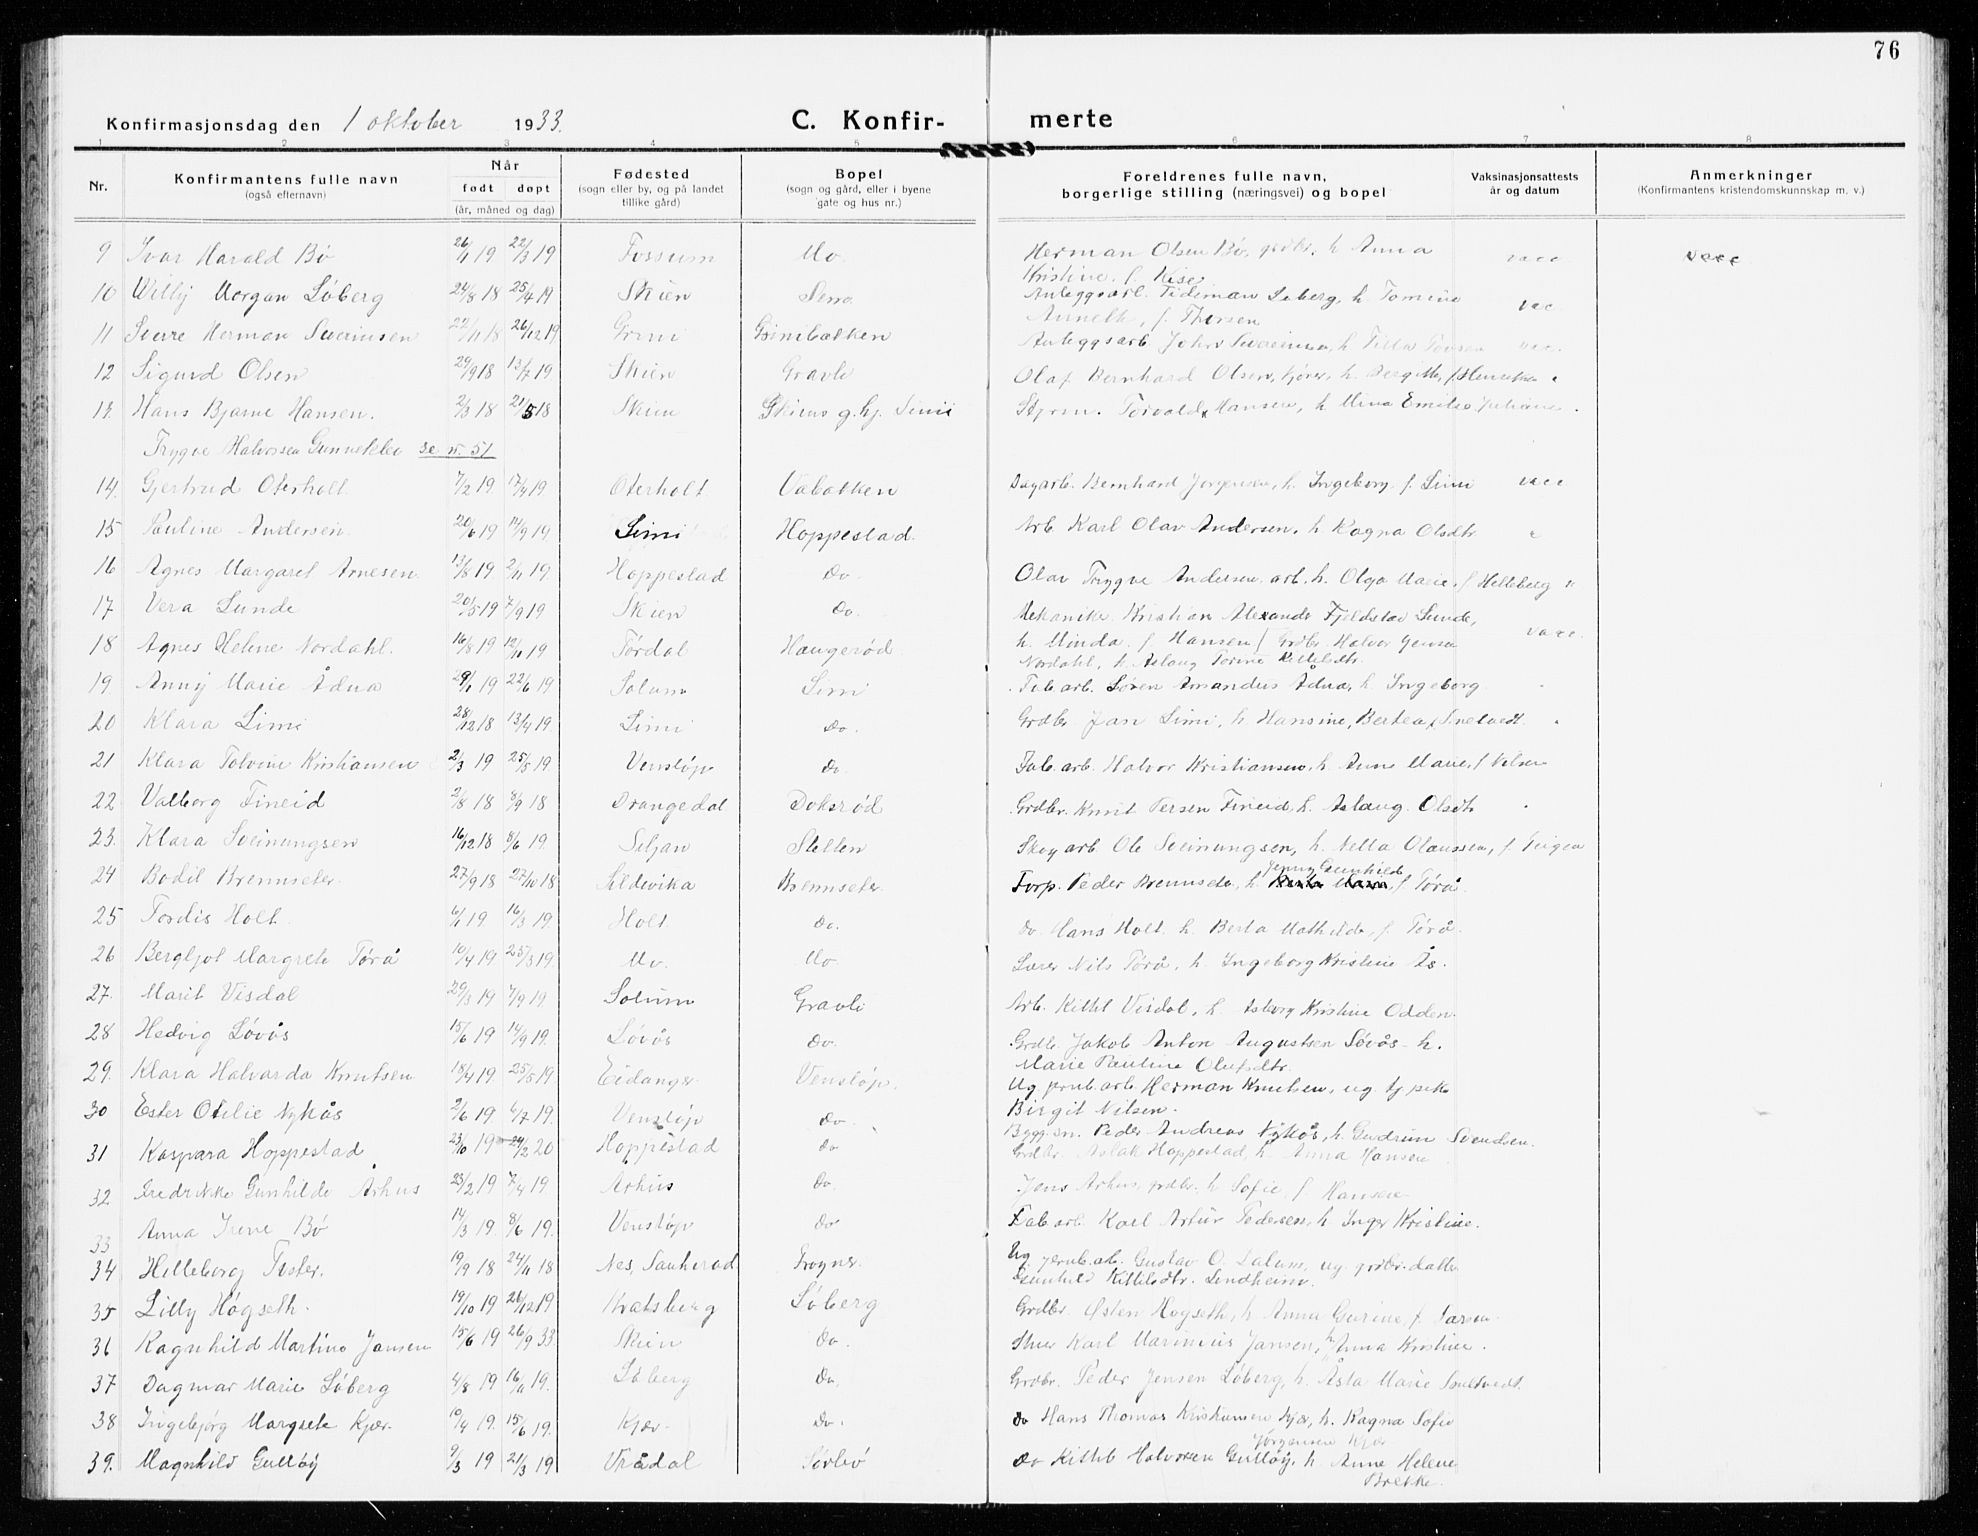 76
Konfirmasjonsdag den 1 oktober 1933.
C. Konfir- merte
1. 2 3 4 5 6 7 8
Nr.
Konfirmantens fulle navn
(også efternavn)
Når
født døpt
(år, måned og dag)
Fødested
(sogn eller by, og på landet
tillike gård)
Bopel
(sogn og gård, eller i byene
gate og hus nr.)
Foreldrenes fulle navn,
borgerlige stilling (næringsvei) og bopel
Vaksinasjonsattests
år og datum
Anmerkninger
(Konfirmantens kristendomskunnskap m. v.)
9 Ivar Harald Bö 26/1 19 22/3 19 Fossum Mo Herman Olsen Bö, grdbr. h. Anna vacc vacc
Kristine f. Kise
10 Willy Morgan Löberg 24/8 18 25/4 19 Skien Anleggsarb. Tideman Löberg, h. Tomine vac
Anneth, f. Thorsen
11 Sverre Herman Severinsen 22/11 18 26/12 19 Grini Grinibakken Anleggsarb. Johs Severinsen, h. Tilla vac.
12 Sigurd Olsen 29/9 18 13/7 19 Skien Gravli Olaf Bernhard Olsen, kjörer, h. Bergitte, f. Henriksen "
13 Hans Bjarne Hansen. 2/3 18 21/5 18 Skien Skiens g. hj. Limi Styrm. Torvald Hansen, h. Mina Emilie Juliane
Trygve Halvorsen Gunnekleiv se nr. 51
14. Gjertrud Oterholt 7/2 19 17/4 19 Oterholt Vabakken Dagarb. Bernhard Jørgensen, h. Ingeborg f. Limi vacc
15 Pauline Andersen 20/6 19 14/9 19 Limi Hoppestad Arb. Karl Olav Andersen, h. Ragna Olsdtr "
16 Agnes Margaret Arnesen 13/8 19 2/11 19. Hoppestad Do. Olav Trygve Andersen, arb. h. Olga Marie, f. Helleberg "
17 Vera Lunde 20/5 19 7/9 19 Skien Do. Mekaniker Kristian Alexander Fjeldstad Lunde,
h. Minda f. Hansen / Grdbr Halvor Jensen vacc.
18 Agnes Helene Nordahl. 16/8 19 12/10 19 Tördal Haugeröd Nordahl, h. Aslaug Torine Kittilsdtr.
19 Anny Marie Ådna 29/1 19 22/6 19 Solum Limi Fab. arb. Sören Amandus Ådna, h. Ingeborg
20 Klara Limi 28/12 18 13/4 19. Limi Do. Grdbr Jan Limi, h. Hansine, Bertea f. Sneltvedt
21 Klara Tolvine Kristiansen 2/3 19 25/5 19 Venstöp Do. Fab. arb. Halvor Kristiansen, h. Anne Marie, f. Nilsen
22 Valborg Fineid 2/8 18 8/9 18 Drangedal Doksröd Grdbr. Knut Persen Fineid, h. Aslaug Olsdtr
23. Klara Sveinungsen 16/12 18 8/6 19. Siljan Stellen Skogarb. Ole Sveinungsen, h. Nella Olaussen, f. Teigen
24 Bodil Brennseter. 27/9 18 27/10 18 Sildevika Brennseter Forp. Peder Brennseter, h. Jenny Gunhild, f. Törå
25 Tordis Holt. 6/1 19 16/3 19. Holt Do. do Hans Holt h. Berta Mathilde, f. Törå.
26 Bergljot Margrete Törå 10/4 19 25/3 19. Mo. Mo Lærer Nils Törå, h. Ingeborg Kristine Ås.
27. Marit Visdal 29/3 19 7/9 19. Solum Gravli Arb. Kittil Visdal, h. Asborg Kristine Odden.
28 Hedvig Lövås 15/6 19 14/9 19. Lövås Do. Grdbr. Jakob Anton Augustsen Lövås - h.
Marie Pauline Olufsdtr.
29. Klara Halvarda Knutsen 18/4 19. 25/5 19 Eidanger Venstöp. Ug. grub. arb. Herman Knutsen, ug tj pike
Birgit Nilsen.
30 Ester Otilie Nykås 2/6 19. 6/7 19. Venstöp Do. Bygg. sn. Peder Andreas Nykås, h. Gudrun Svendsen.
31 Kaspara Hoppestad 23/10 19 24/2 20 Hoppestad Do Grdbr. Aslak Hoppestad, h. Anna Hansen
32 Fredrikke Gunhilde Århus 23/2 19 7/4 19. Århus Do. Jens Århus, grdbr. h. Sofie f. Hansen
33 Anna Irene Bö 14/3 19. 8/6 19. Venstöp Do Fab. arb. Karl Artur Pedersen, h. Inger Kristine.
34 Helleborg Tveter. 19/9 18 24/11 18 Nes, Sauherad Frogner Ug. grub. arb. Gustav O. Dalum, ug. grdbr. datter
Gunhild Kittilsdtr. Lindheim.
35 Lilly Høgseth. 19/10 19 26/12 19 Kvatsberg Löberg Grdbr. Østen Høgseth, h. Anna Gurine, f. Larsen.
36 Ragnhild Martine Jansen 15/6 19 26/9 33 Skien Do. Karl Marinius Jansen, h. Anna Kristine.
37 Dagmar Marie Löberg 4/8 19 16/11 19. Löberg Do. Grdbr. Peder Jensen Löberg, h. Åsta Marie Sneltvedt
38 Ingebjørg Margrete Kjær. 10/4 19. 15/6 19. Kjær Do. do Hans Thomas Kristiansen Kjær, h. Ragna Sofie
Jørgensen Kjær
39. Magnhild Gulløy 9/3 19 21/3 19 Vrådal Sørbö Do Kittil Halvorsen Gulløy, h. Anne Helene
Brekke.